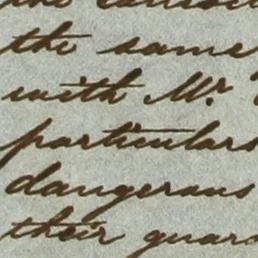 the same
with Mr.
particulars
dangerous
their guar